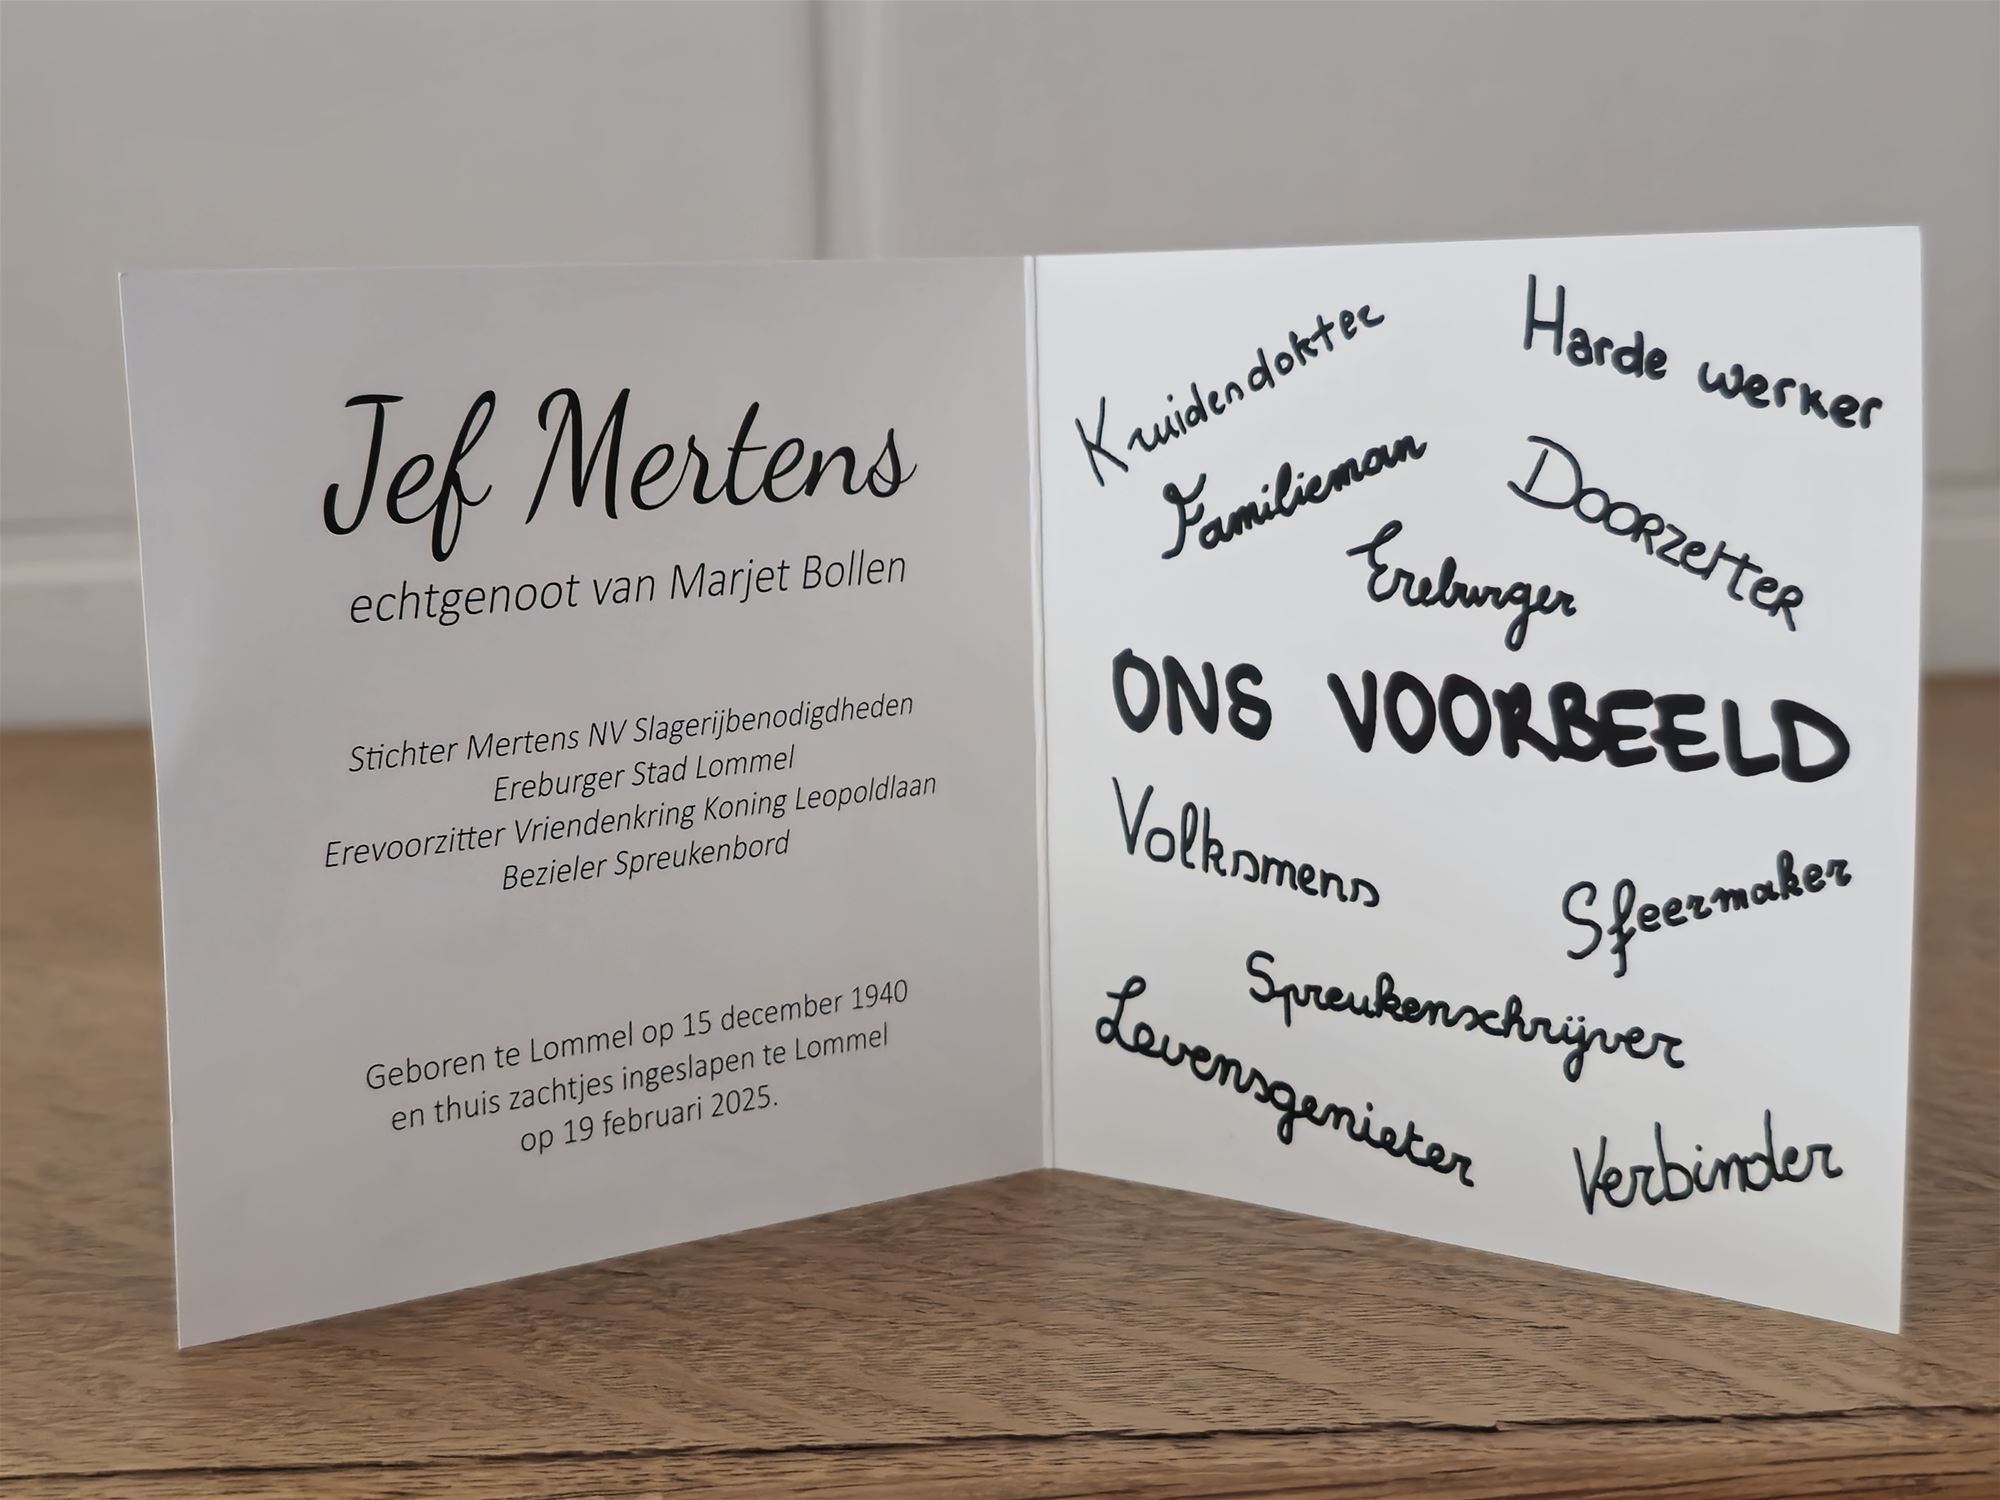 Jef Mertens
echtgenoot van Marjet Bollen
Stichter Mertens NV Slagerijbenodigdheden
Ereburger Stad Lommel
Erevoorzitter Vriendenkring Koning Leopoldlaan
Bezieler Spreukenbord
Geboren te Lommel op 15 december 1940
en thuis zachtjes ingeslapen te Lommel
op 19 februari 2025.
Kruidendokter
Harde werker
Familieman
Doorzetter
Ereburger
ONS VOORBEELD
Volksmens
Sfeermaker
Spreukenschrijver
Levensgenieter
Verbinder